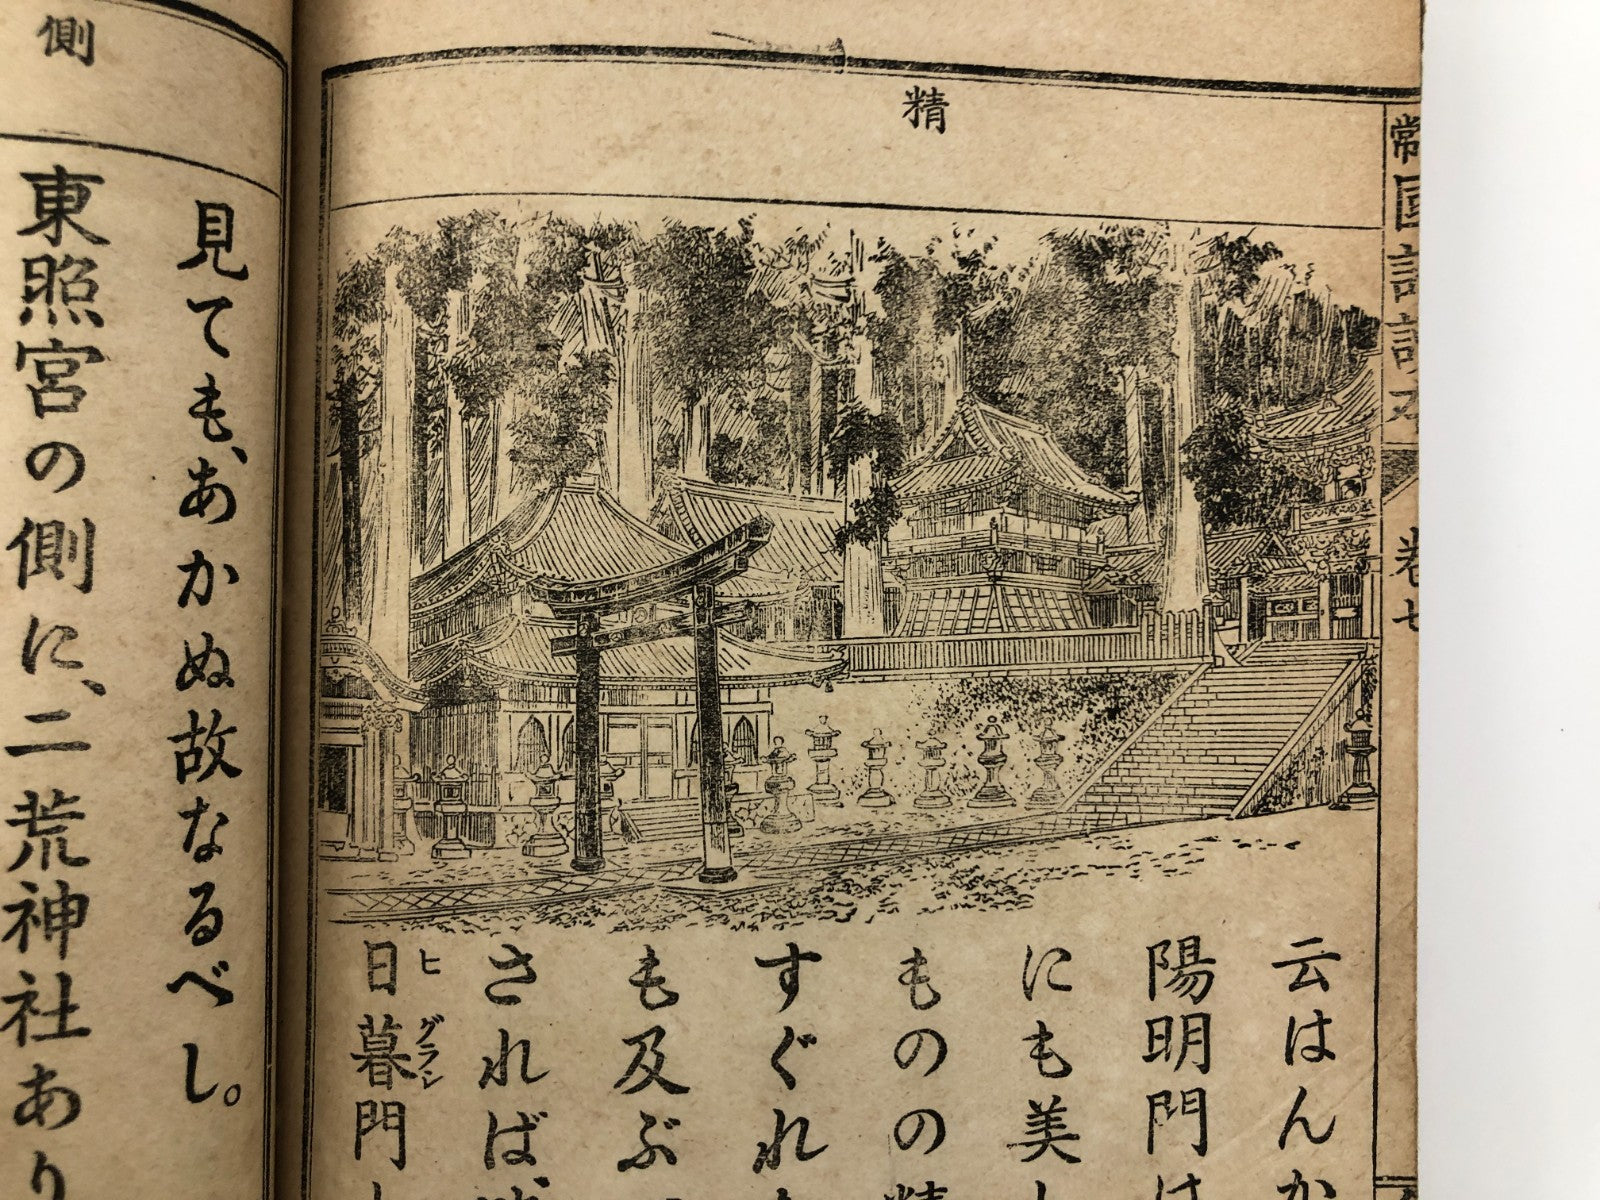 精
常國語讀本 卷七
云はんか
陽明門は
にも美し
ものの精
すぐれた
も及ぶ
されば、
日暮門
ヒグラシ
側
見ても、あかぬ故なるべし。
東照宮の側に、二荒神社あり